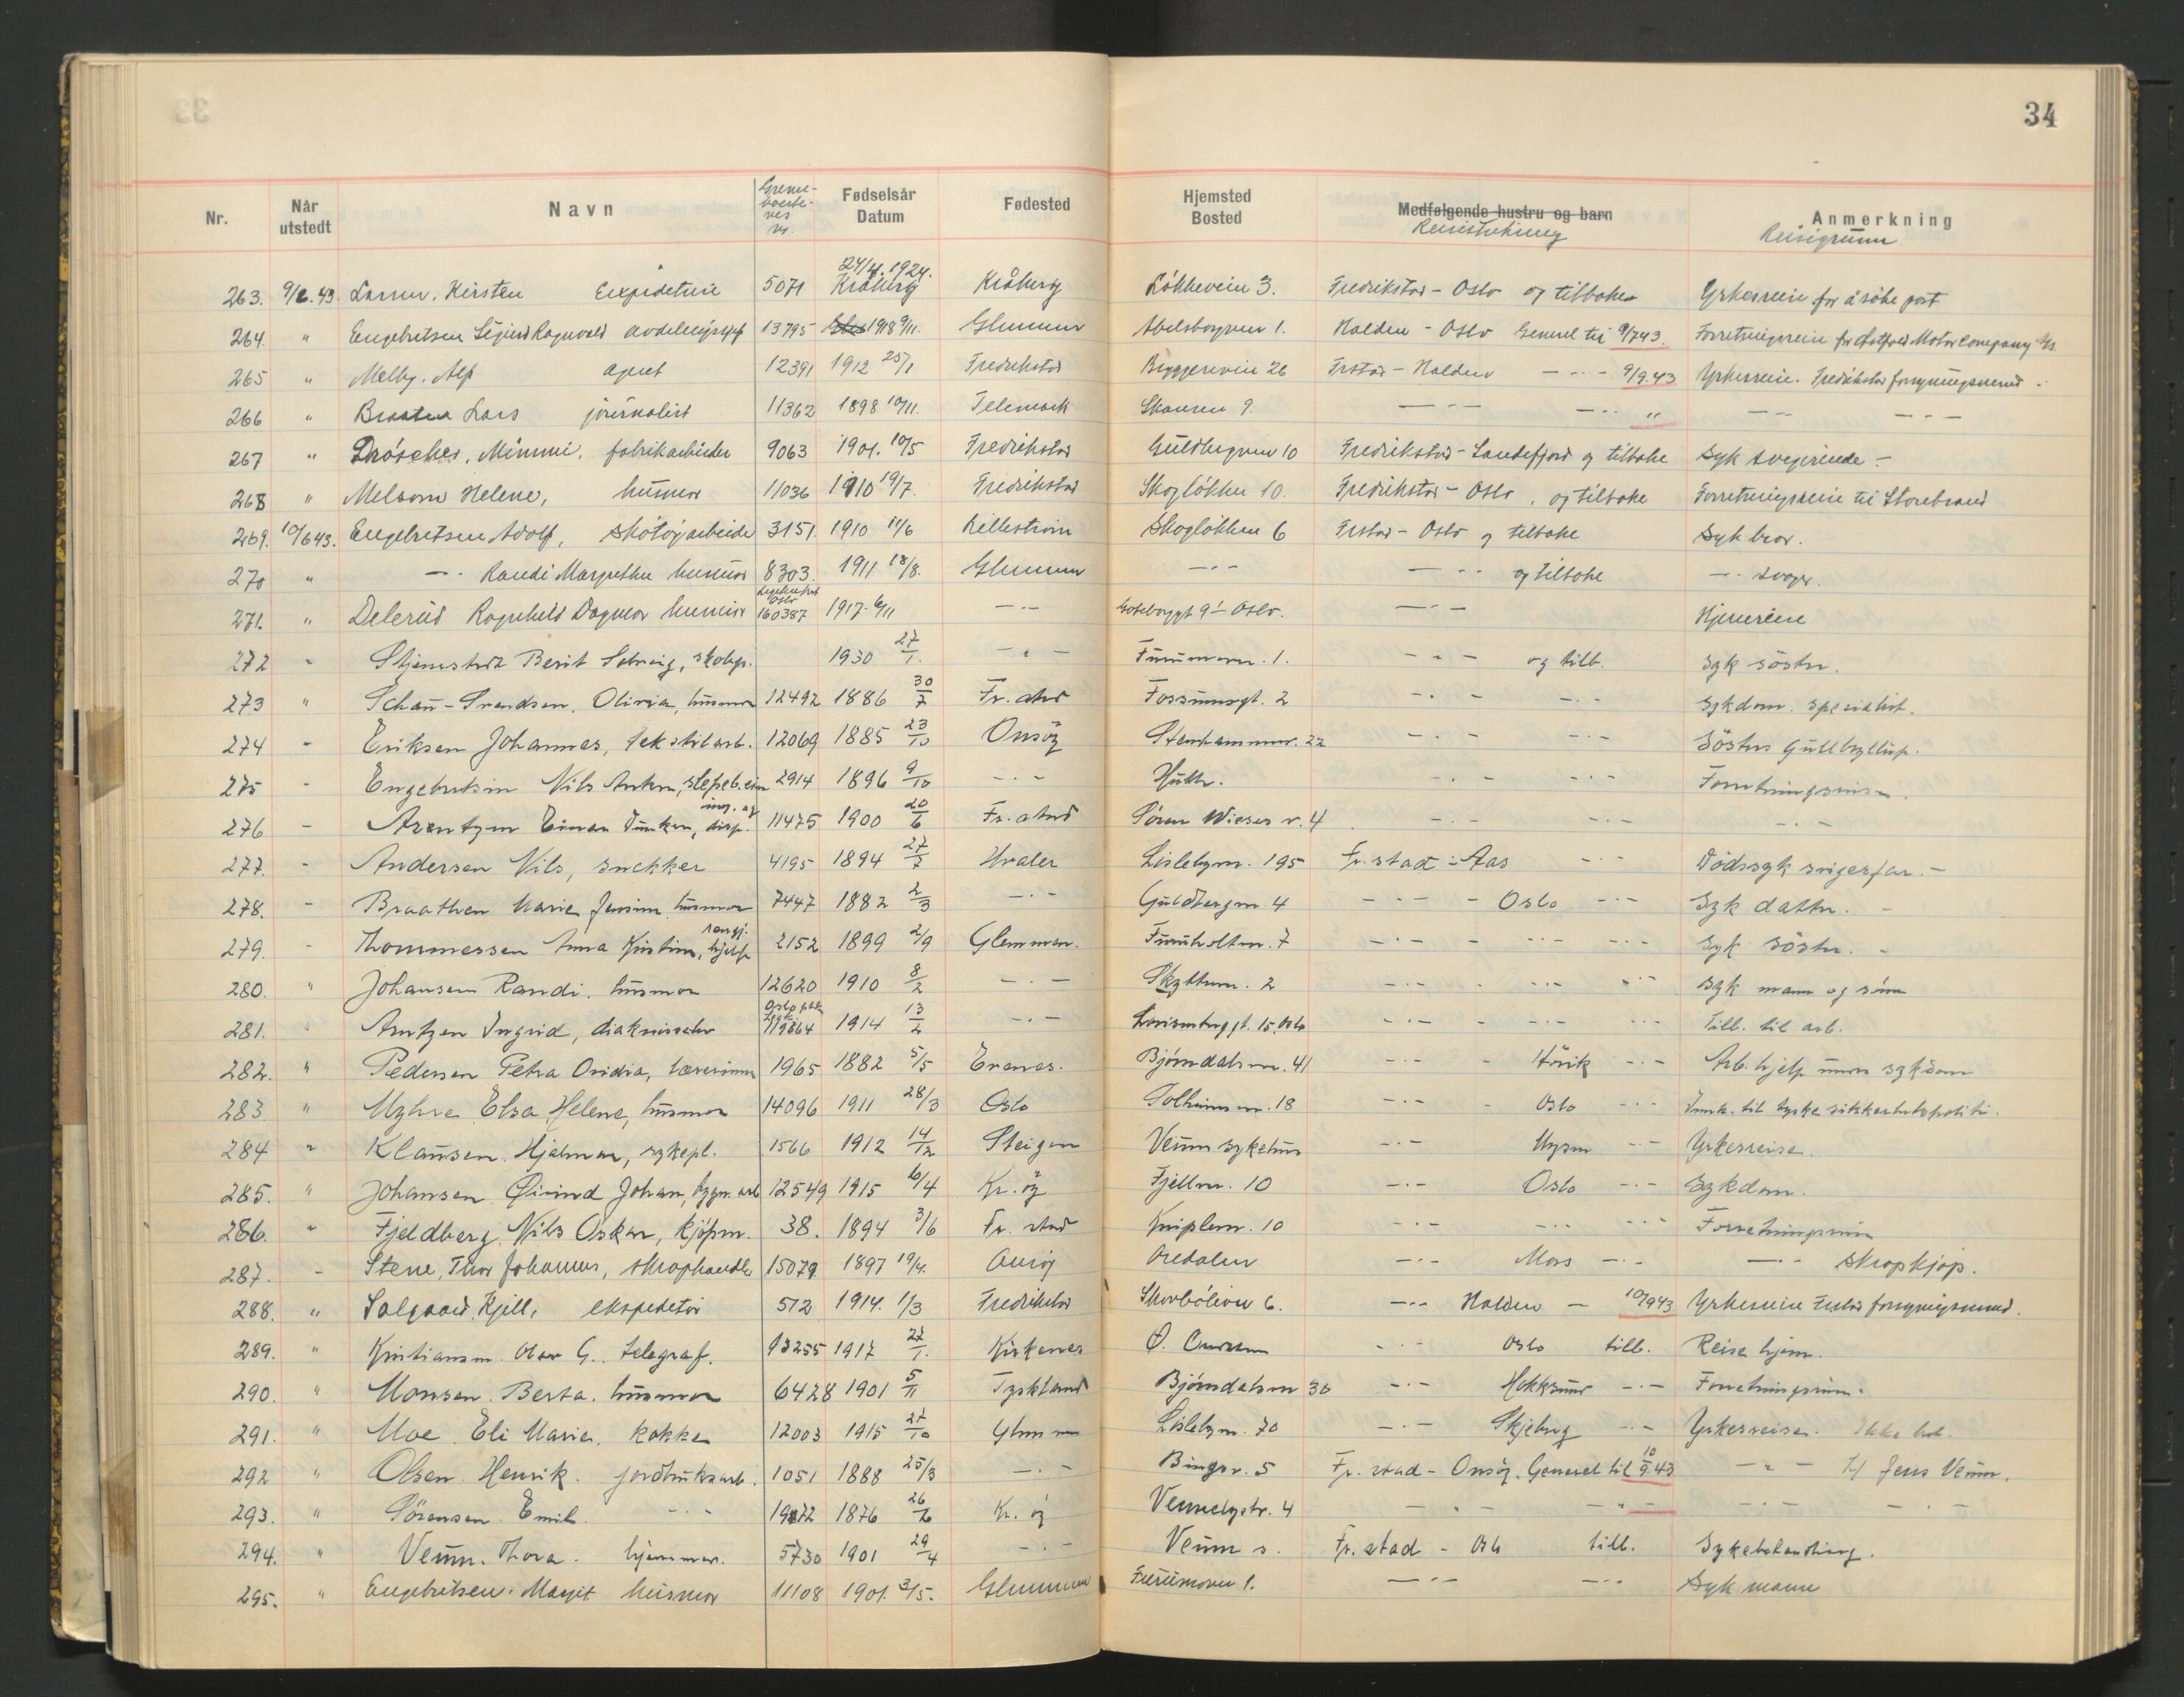 34
Nr. Når utstedt Navn Grense-boerbe-vis nr. Fødselsår Datum Fødested Hjemsted Bosted Medfølgende hustru og barn Reisestrekning Anmerkning Reisegrunn
263. 9/6.43. Larsen, Kirsten 5071 24/4.1924. Kråkerøy Kråkerøy Løkkeveien 3. Fredrikstad - Oslo og tilbake Yrkesreise for å søke post
264. " Engebretsen Sigurd Ragnvald avdelingssjef 13795 1918 9/11. Glemmen 1. Halden - Oslo Generel til 9/7 43. Forretningsreise for Østfold Motor Company A/s.
265 " Melby. Alf agent 12391 1912 25/1 Fredrikstad Bryggeriveien 26 Frstad - Halden - " - 9/9.43 Yrkesreise. Fredrikstad forsyningsnemd -
266 " Braaten Lars journalist 11362 1898 10/11. Telemark Skansen 9. - " - - " - " - " - - " -
267 " Dröscher, Mimmi, fabrikarbeider 9063 1901. 10/5 Fredrikstad Guldbergveien 10 Fredrikstad - Sandefjord og tilbake Syk svigerinde -
268 " Melsom Helene, husmor 11036 1910 19/7. Fredrikstad Skogløkken 10. Fredrikstad - Oslo, og tilbake Forretningsreise til Storebrand
269. 10/6 43. Engebretsen Adolf, skotøyarbeider 3151. 1910 11/6 Lillestrøm Skogløkken 6 Frstad - Oslo og tilbake Syk bror.
270 " - " - Randi Margrethe husmor 8303. 1911 18/8. Glemmen - " - - " - og tilbake - " - svoger.
271. " Delerud Ragnhild Dagmar husmor Oslo 160387 1917. 6/11 - " - 9 I Oslo. - " - Hjemreise
272 " Stjernstedt Berit Solveig, skolep. 1930 27/1. - " - Furumoen. 1. - " - og tilb. Syk söster.
273 " Schau-Svendsen, Olivia, husmor 12492 1886 30/7 Fr.stad Fossumsgt. 2 - " - - " - Sykdom. spesialist.
274 - Eriksen Johannes, tekstilarb. 12069 1885 23/10 Onsöy Stenhammerv. 22 - " - - " - Søsters Gullbryllup.
275 - Engebretsen Nils Anton, 2914 1896 9/10 - " - - " - - " - Forretningsreise.
276 - Arentzen Einar disp. 11475 1900 20/6 Fr.stad Sören Wieses v. 4 - " - - " - - " -
277. - Andersen Nils, snekker 4195 1894 27/7 Hvaler Lislebyv. 195 Fr.stad - Aas - " - Dödssyk svigerfar. -
278. - Braathen Marie husmor 7447 1882 2/3 - " - Guldbergv. 4 - " - - Oslo - " - Syk datter. -
279. - Thommessen Anna Kristine, rengj. hjelp 2152 1899 2/9 Glemmen. Furuholtv. 7 - " - - - " - - " - Syk söster. -
280. " Johansen Randi, husmor 12620 1910 8/2 - " - Skytterv. 2 - " - - " - - " - Syk mann og sönn
281. " Arntzen Ingrid, diakonisse Oslo 119864 1914 13/2 - " - 15, Oslo - " - - " - - " - Tilb. til arb.
282. " Pedersen Petra Ovidia, lærerinne 1965 1882 5/5 Evenes. Bjørndalsv. 41 - " - - - " - Arb. hjelp under sykdom
283. " Myhre Elsa Helene, husmor 14096 1911 28/3 Oslo Solheimsv. 18 - " - - Oslo - " - Innk. til tyske sikkerhetspoliti.
284 " Klausen Hjalmar, sykepl. 1566 1912 14/12 Steigen Veum sykehus - " - Mysen - " - Yrkesreise.
285. " Johansen Øivind Johan, bygn. arb 12549 1915 6/4 Kr.öy Fjellv. 10 - " - Oslo - " - Sykdom.
286. " Fjeldberg Nils Oskar, kjøpm. 38. 1894 3/6 Fr.stad Kniplev. 10 - " - - " - - " - Forretningsreise
287. - Stene, Thor Johannes, skraphandler 15079 1897 19/4. Onsøy Øredalen - " - Moss - " - - " - skrapkjøp.
288. " Salgaard, Kjell, ekspeditør 512 1914. 1/3 Fredrikstad 6. - " - Halden - 10/9 43 Yrkesreise Frstad forsyningsnemd.
289. " Kristiansen Olav G. telegraf. 13255 1917 22/1. Kirkenes - " - Oslo tilb. Reise hjem.
290. " Monsen. Berta. husmor 6428 1901 5/11 Tyskland Bjørndalsv 30 - " - Hokksund - " - Forretningsreise.
291. " Moe. Eli Marie, kokke 12003 1915 27/10 Glemmen Lislebyv. 70 - " - Skjeberg - " - Yrkesreise.
292 " Olsen. Henrik. jordbruksarb. 1051 1888 25/3 - " - Bingsv. 5 Fr.stad - Onsöy. Generel til 10/9.43 - " - h/ Jens Veum.
293. " Sörensen Emil. - " - 1872 1876 26/2 Kr.öy 4 - " - - " - - " - - " -
294. " Veum. Thora. hjemmev. 5730 1901 29/4 - " - Veum s. Fr.stad - Oslo tilb. Sykebehandling.
295. " Engebretsen. Margit husmor 11108 1901. 3/5. Glemmen Furumoen 1. - " - - " - Syk mann